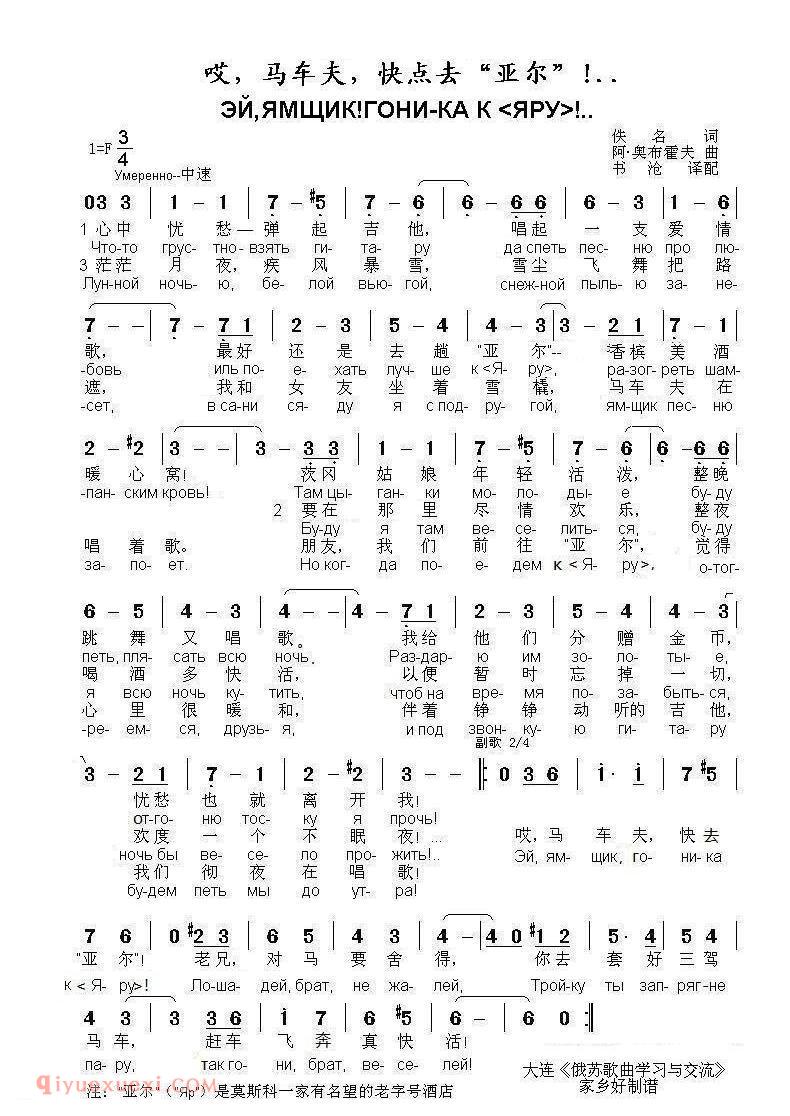 哎，马车夫，快点去“亚尔”！..
ЭЙ,ЯМЩИК!ГОНИ-КА К <ЯРУ>!..
1=F 3/4
佚 名 词
阿·奥布霍夫 曲
书 沧 译配
Умеренно--中速
03 3 | 1 － 1 | 7 － #5 | 7 － 6 | 6 － 6 6 | 6 － 6 | 3 － 3
1 心中 忧 愁— 弹 起 吉 他， 唱起 一 支 爱 情
Что-то грус- тно- взять ги- та- ру да спеть пес- ню про лю-
3 茫茫 月 夜，疾 风 暴 雪， 雪尘 飞 舞 把 路
Лун-ной ночь- ю, бе- лой вью- гой, снеж-ной пылью за- не-
7 － － | 7 － 7 1 | 2 － 3 | 5 － 4 | 4 － 3 | 3 － 2 1 | 7 － 1
歌， 最好 还 是 去 趟 “亚 尔”-- 香槟 美 酒
-бовь иль по- е- хать луч- ше к <Я- ру>, ра-зог- реть шам-
遮， 我和 女 友 坐 着 雪 橇， 马车 夫 在
-сет, в са-ни ся- ду я с под- ру- гой, ям-щик пес- ню
2 － #2 | 3 － － | 3 － 3 3 | 1 － 1 | 7 － #5 | 7 － 6 | 6 －6 6
暖 心 窝！ 茨冈 姑 娘 年 轻 活 泼， 整晚
-пан- ским кровь! Там цы- ган- ки мо- ло- ды- е бу- ду
2 要在 那 里 尽 情 欢 乐， 整夜
Бу-ду я там ве- се- лить- ся, бу-ду
唱 着 歌。 朋友， 我 们 前 往 “亚 尔”， 觉得
за- по- ет. Но ког- да по- е- дем к < Я- ру>, о-тог-
6 － 5 | 4 － 3 | 4 － － | 4 － 7 1 | 2 － 3 | 5 － 4 | 4 － 3
跳 舞 又 唱 歌。 我给 他 们 分 赠 金 币，
петь, пля- сать всю ночь. Раз-дар- ю им зо- ло- ты- е,
喝 酒 多 快 活， 以便 暂 时 忘 掉 一 切，
я всю ночь ку- тить, чтоб на вре- мя по- за- быть-ся,
心 里 很 暖 和， 伴着 铮 铮 动 听的 吉 他，
-ре- ем- ся, друзь- я, и под звон- ку- ю ги- та- ру
副歌 2/4
3 － 2 1 | 7 － 1 | 2 － #2 | 3 － － ‖: 0 3 6 | 1· 1 | 7 #5
忧愁 也 就 离 开 我！
от-го- ню тос- ку я прочь!
欢度 一 个 不 眠 夜！... 哎，马 车 夫， 快 去
ночь бы ве- се- ло про- жить!.. Эй, ям- щик, го- ни-ка
我们 彻 夜 在 唱 歌！
бу-дем петь мы до ут- ра!
7 6 | 0 #2 3 | 3 3 | 5 3 | 4 － | 4 0 #1 2 | 5· 4 | 5 4
“亚 尔”！ 老兄， 对 马 要 舍 得， 你去 套 好 三 驾
к < Я- ру>! Ло-ша- дей, брат, не жа- лей, Трой-ку ты зап- ряг-не
4 3 | 3 3 6 | 1 7 | 6 5 | 6 － | 6 0 :‖
马 车， 赶车 飞 奔 真 快 活！
па- ру, так го- ни, брат, ве- се- лей!
大连《俄苏歌曲学习与交流》
家乡好制谱
qiyuexuexi.com
注：“亚尔”（“Яр”）是莫斯科一家有名望的老字号酒店